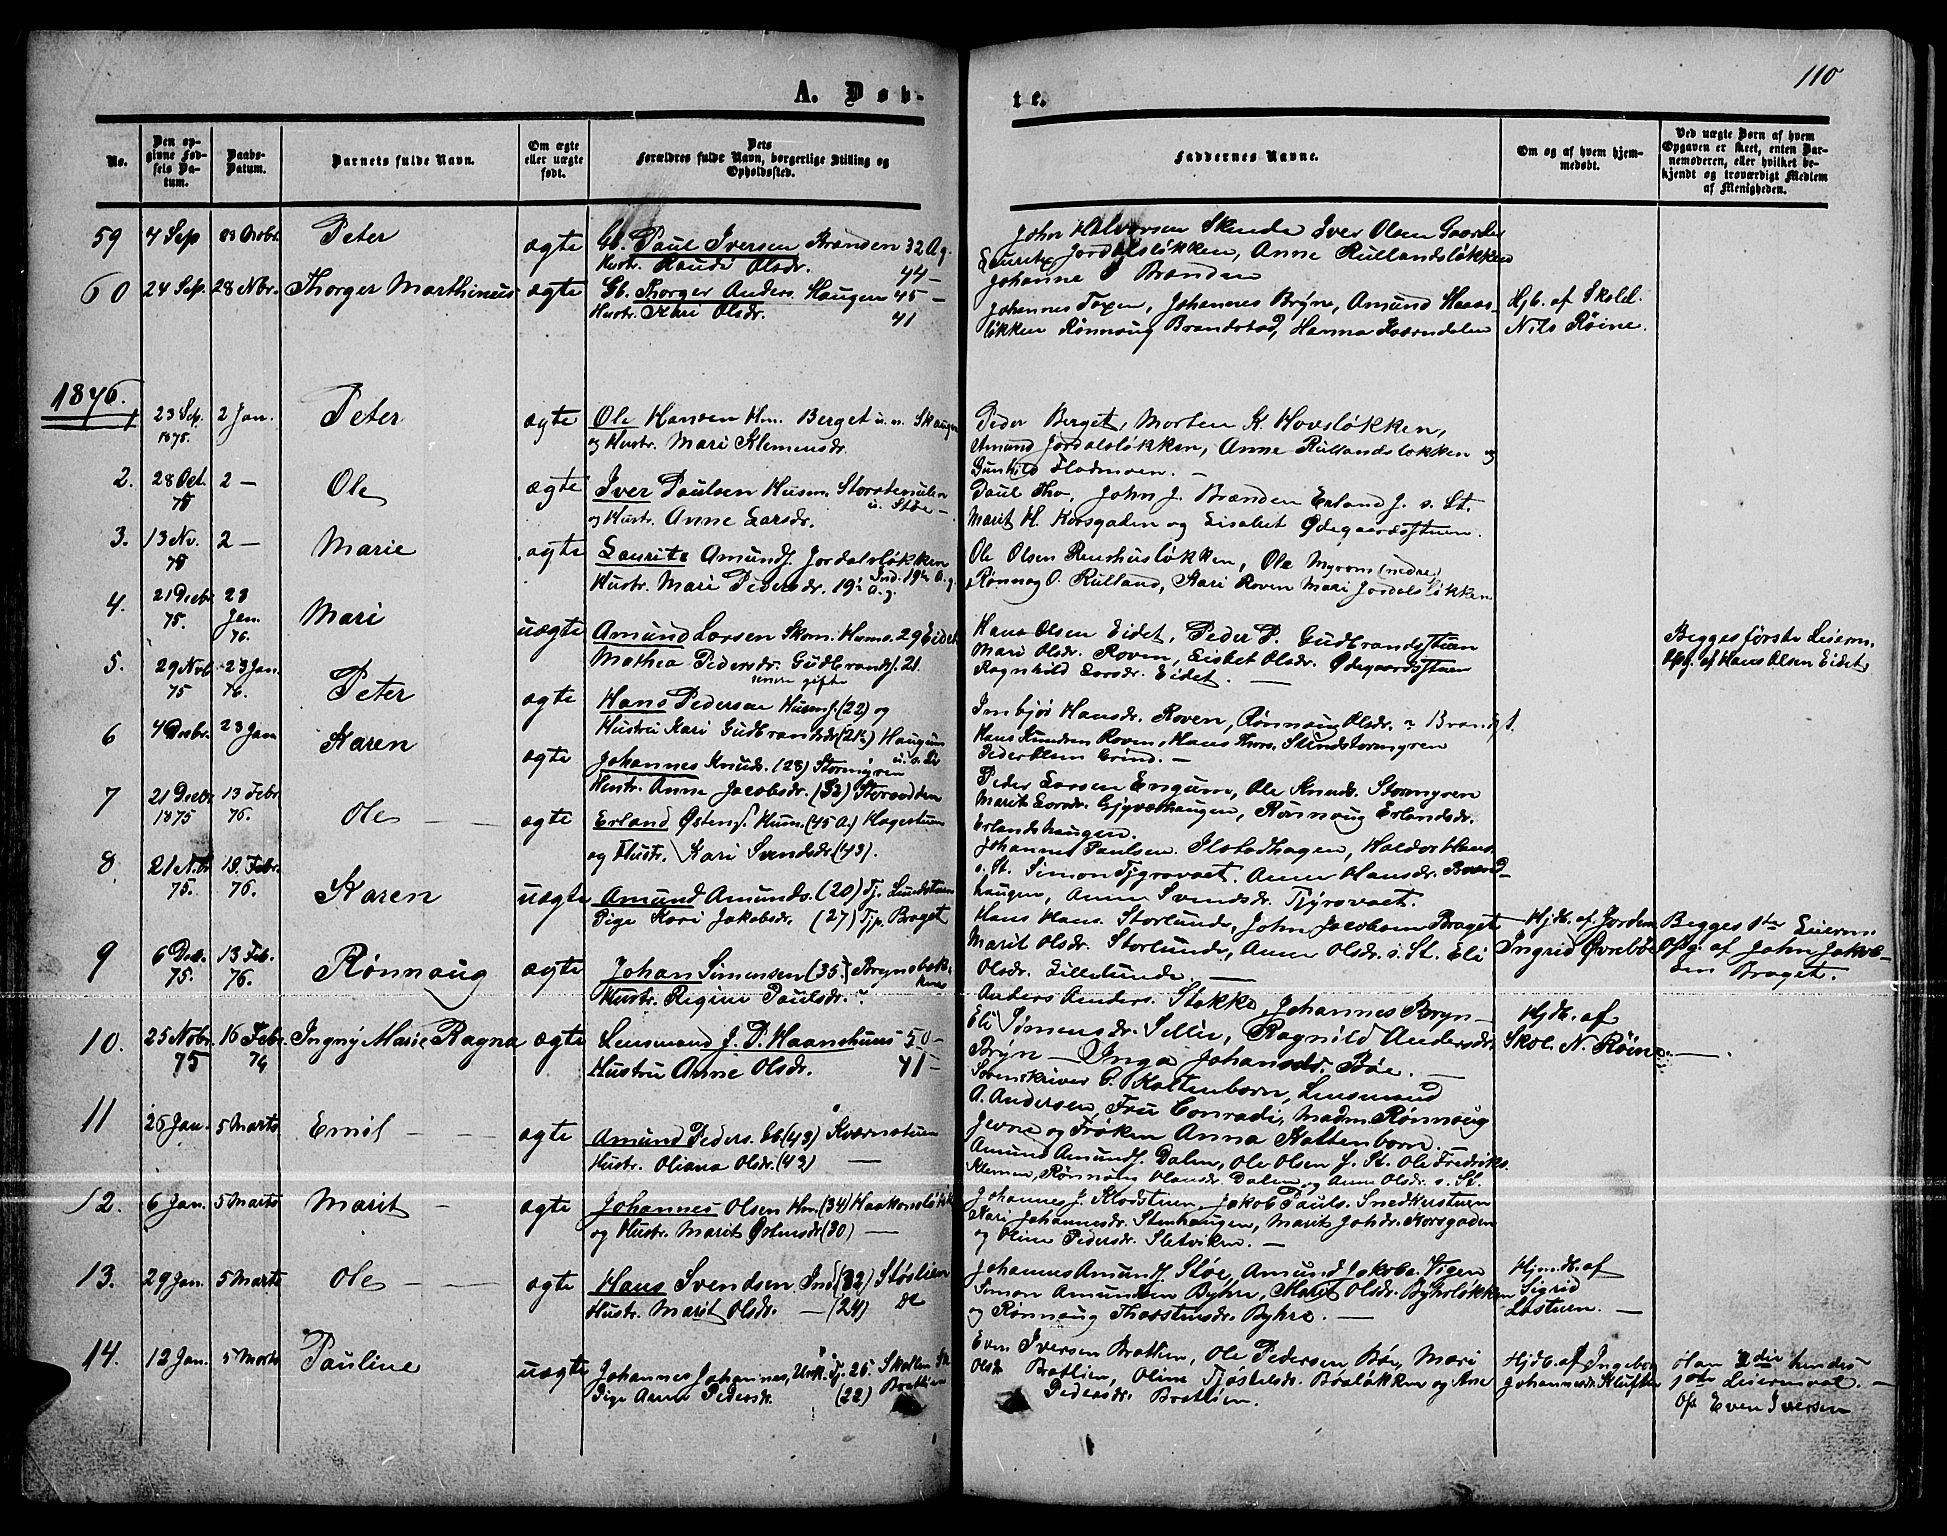 110
A. Døb-
te.
No.
Den op-
givne Fød-
sels Da-
tum.
Daabs-
Datum.
Barnets fulde Navn.
Om ægte
eller uægte
født.
Dets
Forældres fulde Navn, borgerlige Stilling og
Opholdssted.
Faddernes Navne.
Om og af hvem hjem-
medøbt.
Ved uægte Børn af hvem
Opgaven er skeet, enten Bar-
nemoderen, eller hvilket be-
kjendt og troværdigt Medlem
af Menigheden.
59 4 Sep Peter ægte Gb. Paul Iversen Brænden 32 Ag.
Hustr. Randi Olsdr. 44 –
John Halvorsen Skende Iver Olsen
Lauritz Jordalsløkken, Anne Rullandsløkken
Johanne Brænden
60 24 Sep. 28 Nbr. Thorger Marthinus ægte Gb. Thorger Anders. Haugen 45 –
Hustr. Kari Olsdr. 41
Johannes Toxen, Johannes Bryn, Amund Haans-
løkken Rønnaug Brandstad, Hanna Kværndalen
Hjb. af Skolel.
Nils Røine.
1876.
1 23 Sep. 1875. 2 Jan. Peter ægte Ole Hansen Hm. Berget u. n. Skaugen
og Hustr. Mari Klemensdr.
Peder Berget, Morten K. Hovsløkken,
Amund Jordalsløkken, Anne Rullandsløkken og
Gunhild Flodmoen. –
2. 28 Oct. 75 2 – Ole ægte Iver Paulsen Husm. Storstenulen
u. Støe –
og Hustr. Anne Larsdr.
Paul Tho, John J. Brænden Erland J. s. St.
Marit H. Korsgaden og Lisabet Ødegaardsstuen.
3. 13 Nv. 75 2 – Marie ægte Lauritz Amunds. Jordalsløkken
Ind. 19½ Ag.
Hustr. Mari Pedersdr. 19½ Ag.
Ole Olsen Reushusløkken, Ole Myrom (nedre)
Rønnog O. Rulland, Kari Roven Mari Jordalsløkken
4. 21 Decbr 75. 23 Jan. 76. Mari uægte Amund Larsen Skom. Husms. 29 Eidet
Mathea Pedersdr. Gudbrands. 21.
senere gifte
Hans Olsen Eidet, Peder P. Gudbrandsstuen
Mari Olsdr. Roven, Lisbet Olsdr. Ødegaardsstuen
Ragnhild Larsdr. Eidet. –
Begges første Leierm.
Opg. af Hans Olsen Eidet
5. 29 Nvb 75 23 Jan. 76. Peter ægte Hans Pedersen Husm. (22) og
Hustru Kari Gudbrandsdr (21½) Haugum
Imbjør Hansdr. Roven, Rønnaug Olsdr.
Hans Knudsen Roven, Hans Thors.
Peder Olsen Grind. –
6 4 Decbr. 23 Jan Karen ægte Johannes Knuds. (28) Stormyren
Hustr. Anne Jacobsdr. (32)
Peder Larsen Engum, Ole Knuds. Stormyren
Marit Larsdr. Gjyvelhaugen, Rønnaug Erlandsdr.
Erlandshaugen.
7 21 Decbr 1875 13 Febr 76. Ole – – ægte Erland Østens. Husm. (45 A.) Hagestuen
og Hustr. Kari Svendsdr (43).
Johannes Paulsen Slotadhagen, Haldor Hans.
s. St. Simon Tjyrovaet. Anne Hansdr. Brænd-
haugen, Anne Svendsdr. Tjyrovaet.
8. 21 Nbr 75. 13. Febr. 76. Karen uægte Amund Amunds. (20) Tj. Lundstuen
Pige Kari Jakobsdr. (27) Tjp. Braget
Hans Hans. Storlunde, John Jacobsen Braget
Marit Olsdr. Storlunde, Anne Olsdr. s. St. Eli
Olsdr. Lillelunde. –
Hjdb. af Jordem
Ingrid Øvrebø
Begges 1ste Leierm.
Opg. af John Jakob-
sen Braget.
9 6 Dec. 75. 13 Feb. 76. Rønnaug ægte Johan Simensen (35) Brynsbak-
ken
Hustr. Regine Paulsdr.
Anders Anders. Stokke, Johannes Bryn –
Eli Simensdr. Sellie, Ragnild Andersdr.
Bryn – Inga Johansdr. Bøe. –
Hjdb. af
Skol. N. Røine. –
10. 25 Novbr. 75 16 Febr. 76 Ingny Marie Ragna ægte Lensmand J. P. Haanshuus 50 –
Hustru Anne Olsdr. 41 –
Sorenskriver C. Kaltenborn, Lensmand
A. Andersen, Fru Conradi, Madm. Rønnaug
Jevne og Frøken Anna Kaltenborn.
11 26 Jan. 5 Marts Emil – – ægte Amund Peders. Gb. (43) Kværnstuen
Hustr. Oliana Olsdr. (43) –
Amund Amunds. Dalen, Ole Olsen s. St. Ole Fredriks.
Klemen, Rønnaug Olausdr. Dalen, og Anne Olsdr. s. St.
12. 6 Jan. 5 Marts Marit – ægte Johannes Olsen Hm. (34) Haakonsløkk.
og Hustr. Marit Østensdr (30) –
Johannes J. Klodstuen, Jakob Pauls. Snedkerstuen
Kari Johannesdr. Stenhaugen, Marit Johdr. Korsgaden
og Oline Pedersdr. Sletviken. –
13. 29 Jan. 5 Marts Ole – – ægte Hans Svendsen Ind (32) Støslien
Hustr. Marit Olsdr. – (24)
Johannes Amunds. Støe, Amund Jakobs. Vigen
Simon Amundsen Byhre, Marit Olsdr. Byhreløkken
og Rønnaug Thorstensdr. Byhre. –
Hjmdb. af
Sigrid
Løstuen. –
14. 12 Jan. 5 Marts Pauline uægte Johannes Johannes. Urk. Tj. 25.
Pige Anne Pedersdr. (22) Bratlien
Even Iversen Bratlien, Ole Pedersen Bø, Mari
Olsdr Bratlien, Oline Tjøstelsdr. Bøeløkken og Ane
Pedersdr. Bratlien.
Hjdb. af Ingeborg
Johannesdr. Kluften
2den hendes
1ste Leiermaal. –
Opg Even Iversen